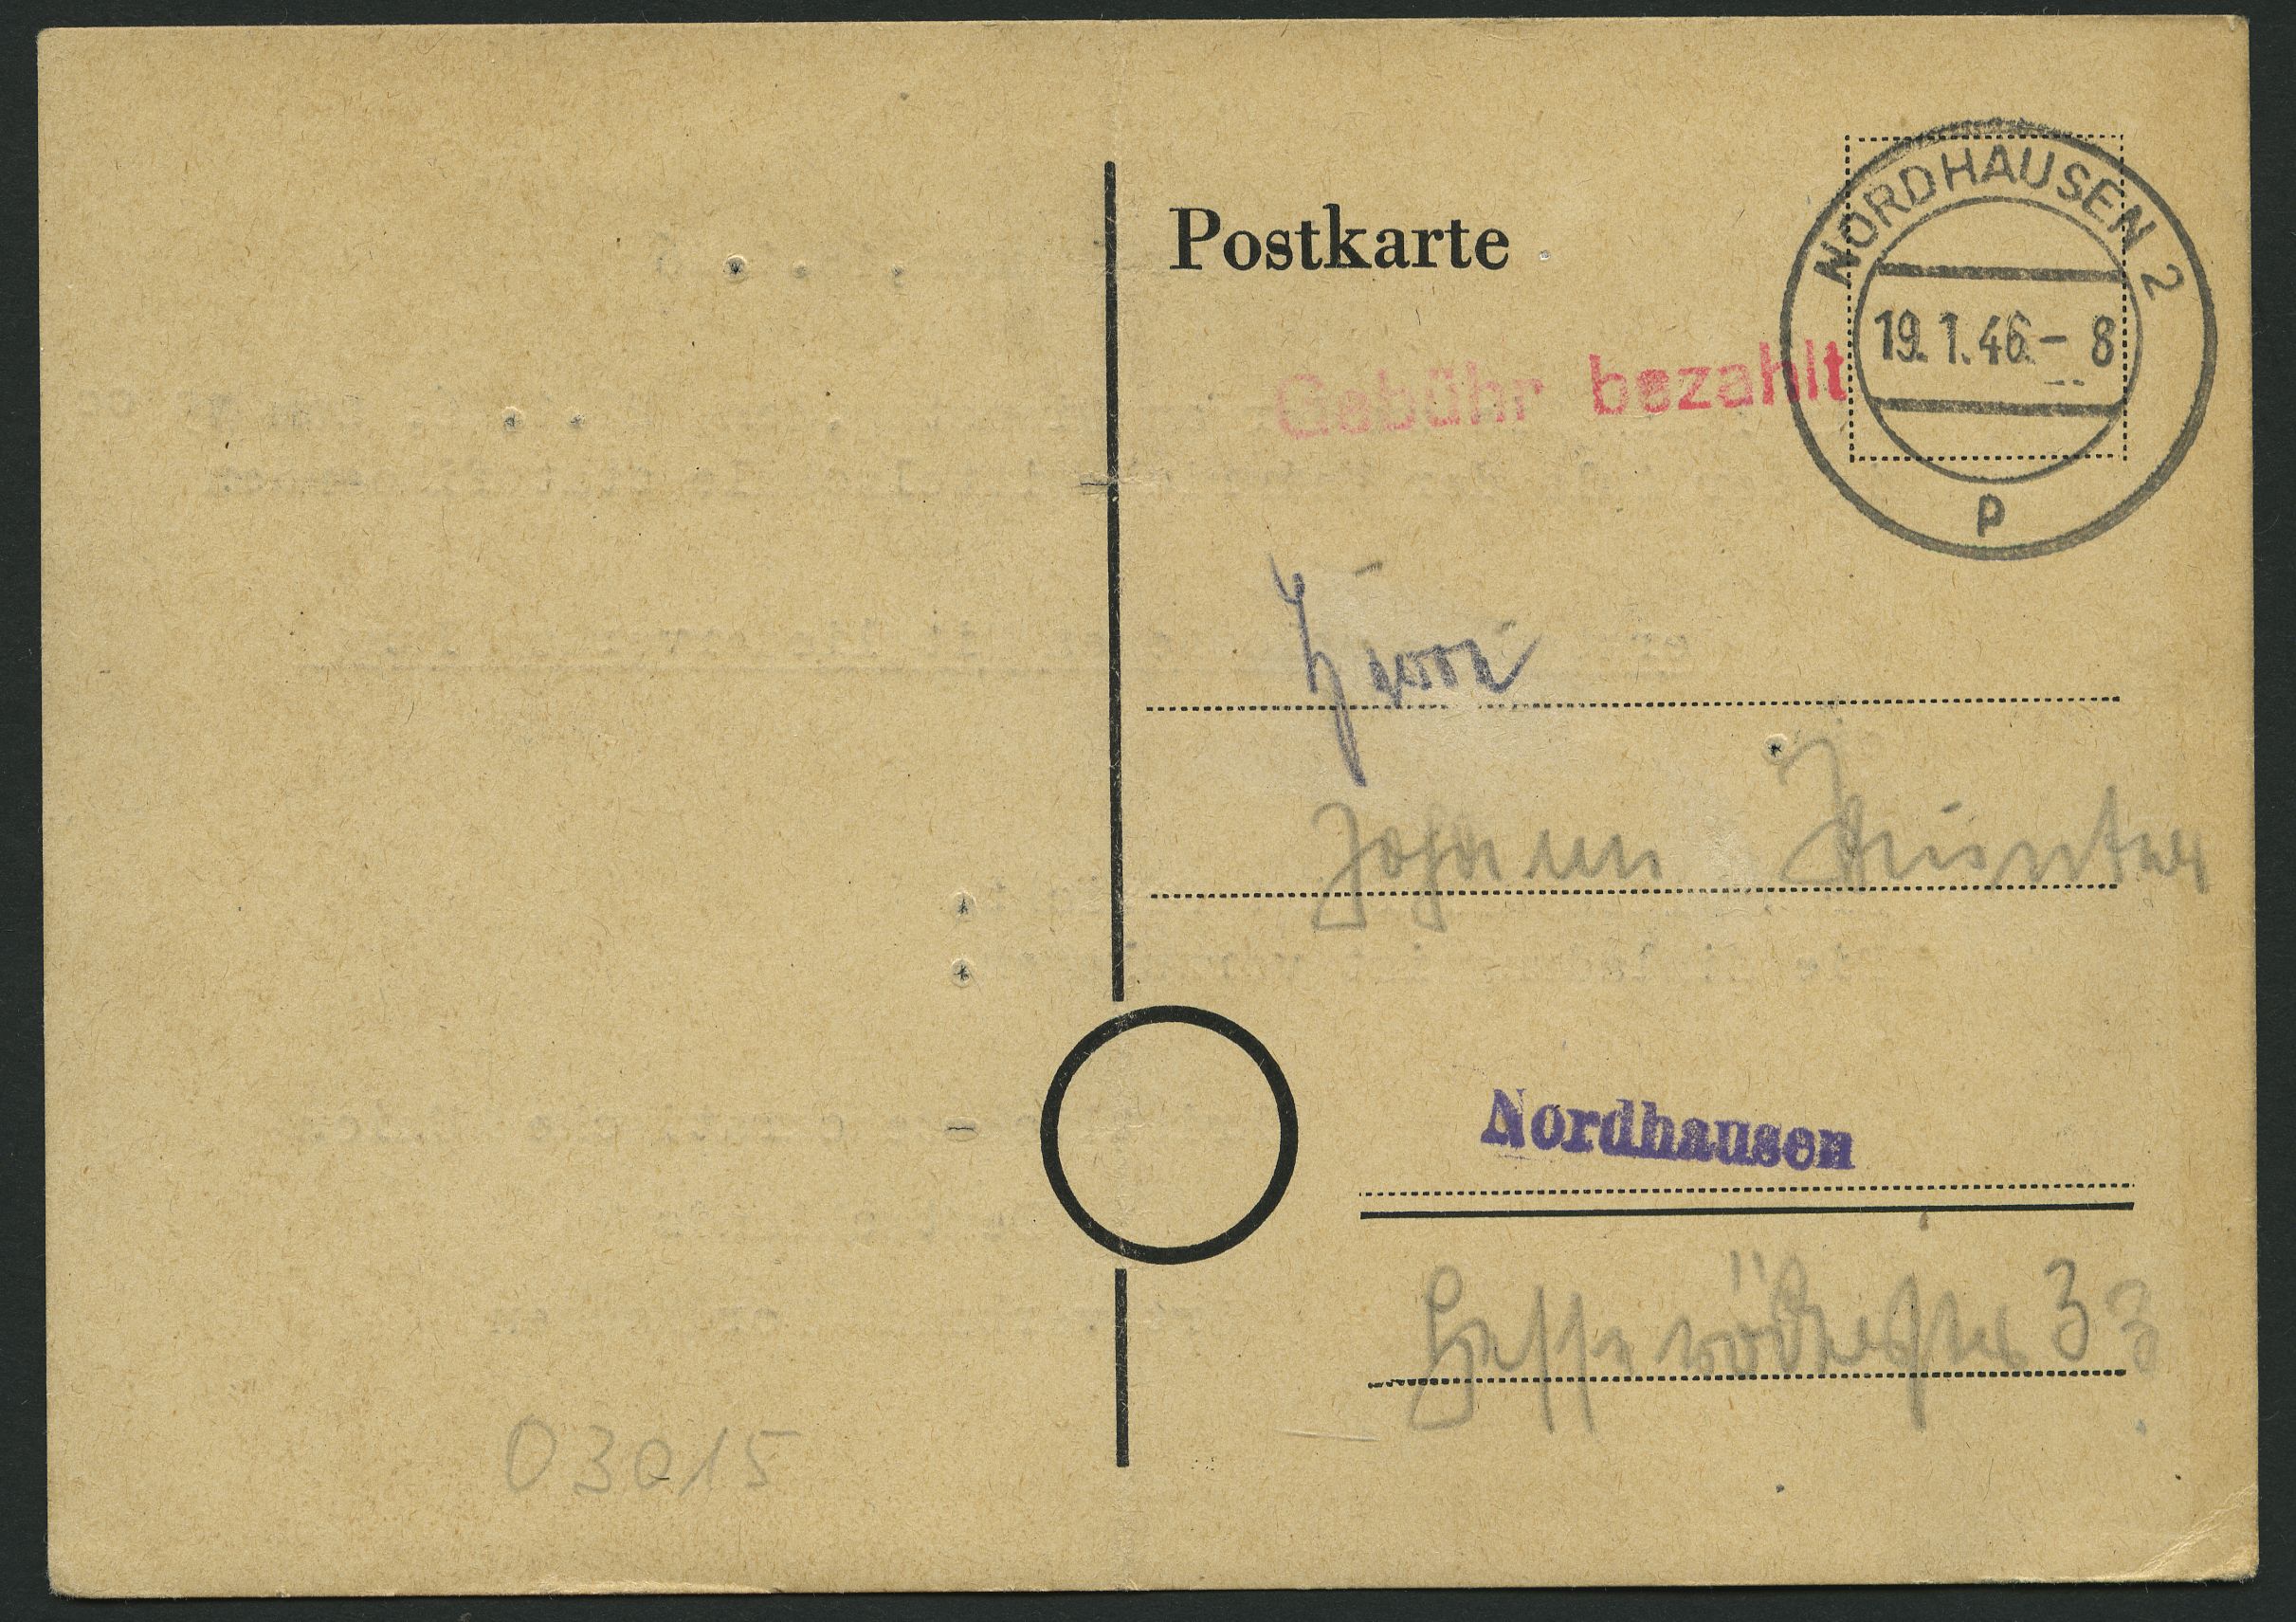 Postkarte
NORDHAUSEN 2
19.1.46.- 8
p
Gebühr bezahlt
Herrn
Johann
Nordhausen
33
03015